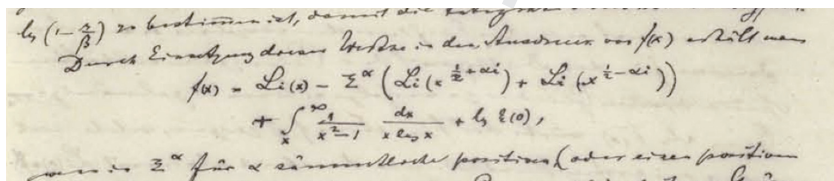 lg (1 - s/β) zu bestimmen ist, damit die
Durch Einsetzung dieser Werthe in den Ausdruck von f(x) erhält man
f(x) = Li(x) - Σ^α (Li(x^(1/2 + αi)) + Li(x^(1/2 - αi)))
+ ∫_x^∞ 1/(x^2 - 1) dx/(x log x) + lg ξ(0),
wenn in Σ^α für α sämmtliche positiven (oder einen positiven